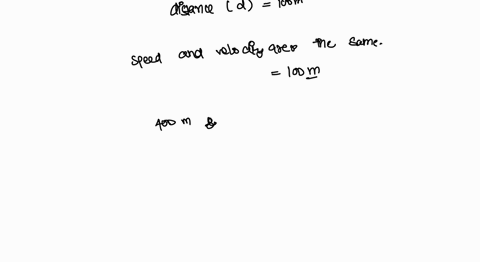 distance (d) = 100m
speed and velocity are the same.
= 100m
400 m &